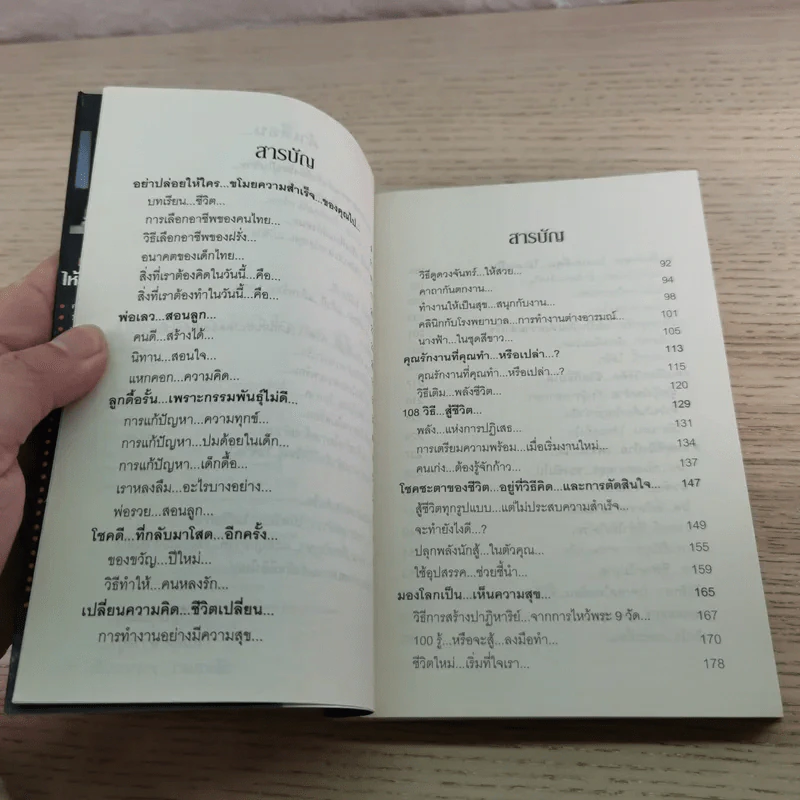 ให้
สารบัญ
อย่าปล่อยให้ใคร...ขโมยความสำเร็จ...ของคุณไป...
บทเรียน...ชีวิต...
การเลือกอาชีพของคนไทย...
วิธีเลือกอาชีพของฝรั่ง...
อนาคตของเด็กไทย...
สิ่งที่เราต้องคิดในวันนี้...คือ...
สิ่งที่เราต้องทำในวันนี้...คือ...
พ่อเลว...สอนลูก...
คนดี...สร้างได้...
นิทาน...สอนใจ...
แหกคอก...ความคิด...
ลูกดื้อรั้น...เพราะกรรมพันธุ์ไม่ดี...
การแก้ปัญหา...ความทุกข์...
การแก้ปัญหา...ปมด้อยในเด็ก...
การแก้ปัญหา...เด็กดื้อ...
เราหลงลืม...อะไรบางอย่าง...
พ่อรวย...สอนลูก...
โชคดี...ที่กลับมาโสด...อีกครั้ง...
ของขวัญ...ปีใหม่...
วิธีทำให้...คนหลงรัก...
เปลี่ยนความคิด...ชีวิตเปลี่ยน...
การทำงานอย่างมีความสุข...
สารบัญ
วิธีดูดวงจันทร์...ให้สวย... 92
คาถากันตกงาน... 94
ทำงานให้เป็นสุข...สนุกกับงาน... 98
คลินิกกับโรงพยาบาล...การทำงานต่างอารมณ์... 101
นางฟ้า...ในชุดสีขาว... 105
คุณรักงานที่คุณทำ...หรือเปล่า...? 113
คุณรักงานที่คุณทำ...หรือเปล่า...? 115
วิธีเติม...พลังชีวิต... 120
108 วิธี...สู้ชีวิต... 129
พลัง...แห่งการปฏิเสธ... 131
การเตรียมความพร้อม...เมื่อเริ่มงานใหม่... 134
คนเก่ง...ต้องรู้จักก้าว... 137
โชคชะตาของชีวิต...อยู่ที่วิธีคิด...และการตัดสินใจ... 147
สู้ชีวิตทุกรูปแบบ...แต่ไม่ประสบความสำเร็จ...
จะทำยังไงดี...? 149
ปลุกพลังนักสู้...ในตัวคุณ... 155
ใช้อุปสรรค...ช่วยชี้นำ... 159
มองโลกเป็น...เห็นความสุข... 165
วิธีการสร้างปาฏิหาริย์...จากการไหว้พระ 9 วัด... 167
100 รู้...หรือจะสู้...ลงมือทำ... 170
ชีวิตใหม่...เริ่มที่ใจเรา... 178